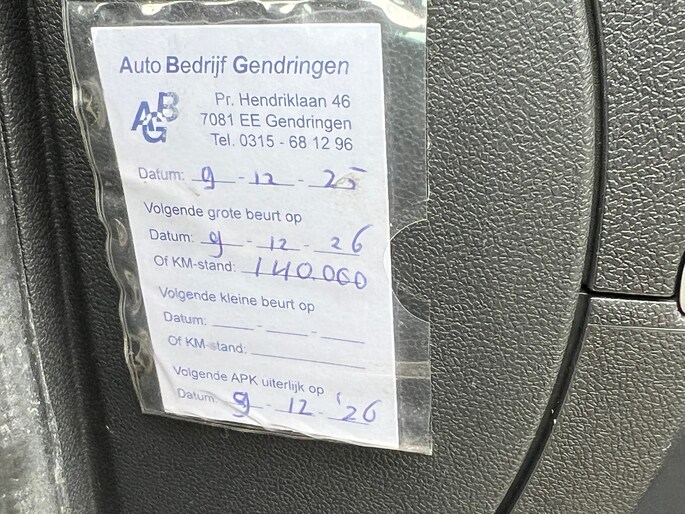 Auto Bedrijf Gendringen
ABG
Pr. Hendriklaan 46
7081 EE Gendringen
Tel. 0315 - 68 12 96
Datum: 9 - 12 - 25
Volgende grote beurt op
Datum: 9 - 12 - 26
Of KM-stand: 140.000
Volgende kleine beurt op
Datum: ____ - ____ - ____
Of KM-stand: ____
Volgende APK uiterlijk op
Datum 9 - 12 - '26